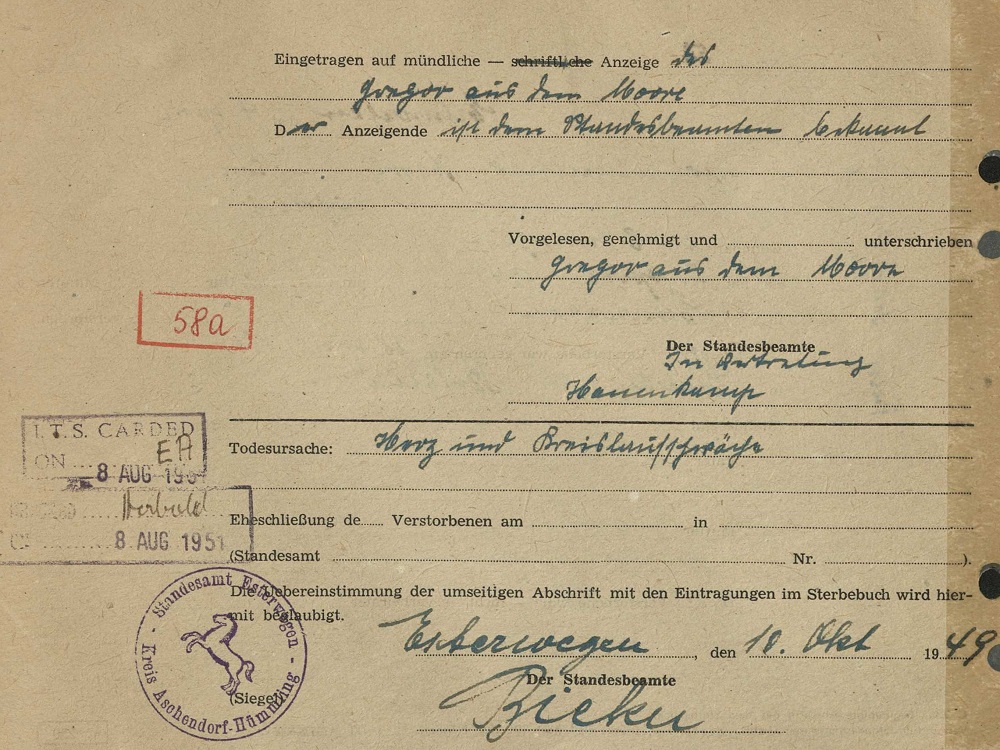 Eingetragen auf mündliche — schriftliche Anzeige des
Gregor aus dem Moore
Der Anzeigende ist dem Standesbeamten bekannt
Vorgelesen, genehmigt und unterschrieben
Gregor aus dem Moore
58a
Der Standesbeamte
In Vertretung
I.T.S. CARDED
ON EA
8 AUG 195
Todesursache: Herz und Kreislaufschwäche
8 AUG 1951
Eheschließung de Verstorbenen am in
(Standesamt Nr. ).
Die Uebereinstimmung der umseitigen Abschrift mit den Eintragungen im Sterbebuch wird hier-
mit beglaubigt.
Esterwegen, den 10. Okt 1949
Der Standesbeamte
(Siegel)
Standesamt Esterwegen
Kreis Aschendorf-Hümmling